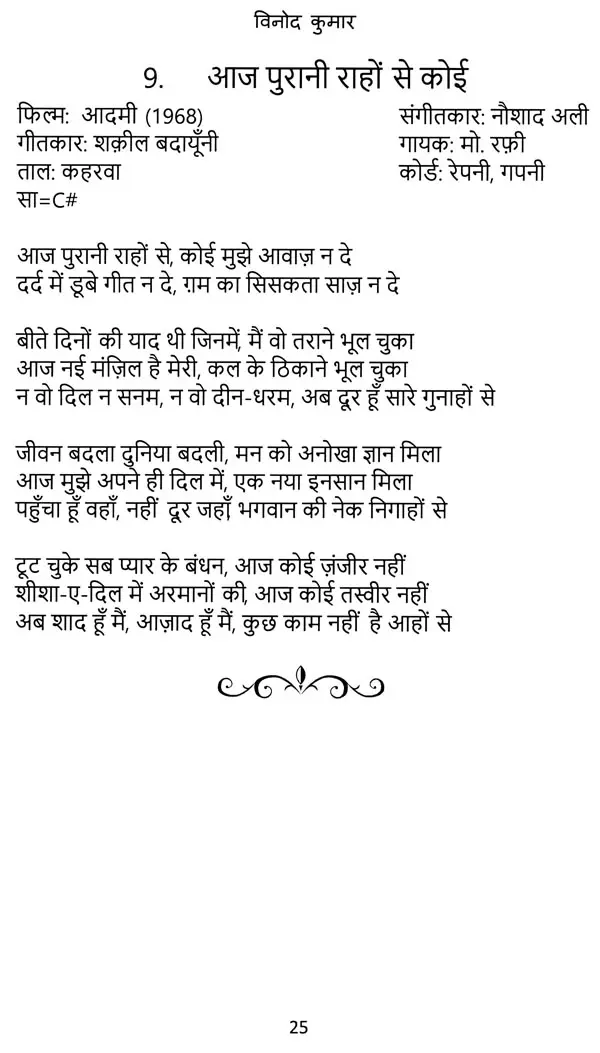 विनोद कुमार
9. आज पुरानी राहों से कोई
फिल्म: आदमी (1968) संगीतकार: नौशाद अली
गीतकार: शक़ील बदायूँनी गायक: मो. रफ़ी
ताल: कहरवा कोर्ड: रेपनी, गपनी
सा=C#
आज पुरानी राहों से, कोई मुझे आवाज़ न दे
दर्द में डूबे गीत न दे, ग़म का सिसकता साज़ न दे
बीते दिनों की याद थी जिनमें, मैं वो तराने भूल चुका
आज नई मंज़िल है मेरी, कल के ठिकाने भूल चुका
न वो दिल न सनम, न वो दीन-धरम, अब दूर हूँ सारे गुनाहों से
जीवन बदला दुनिया बदली, मन को अनोखा ज्ञान मिला
आज मुझे अपने ही दिल में, एक नया इनसान मिला
पहुँचा हूँ वहाँ, नहीं दूर जहाँ, भगवान की नेक निगाहों से
टूट चुके सब प्यार के बंधन, आज कोई ज़ंजीर नहीं
शीशा-ए-दिल में अरमानों की, आज कोई तस्वीर नहीं
अब शाद हूँ मैं, आज़ाद हूँ मैं, कुछ काम नहीं है आहों से
25